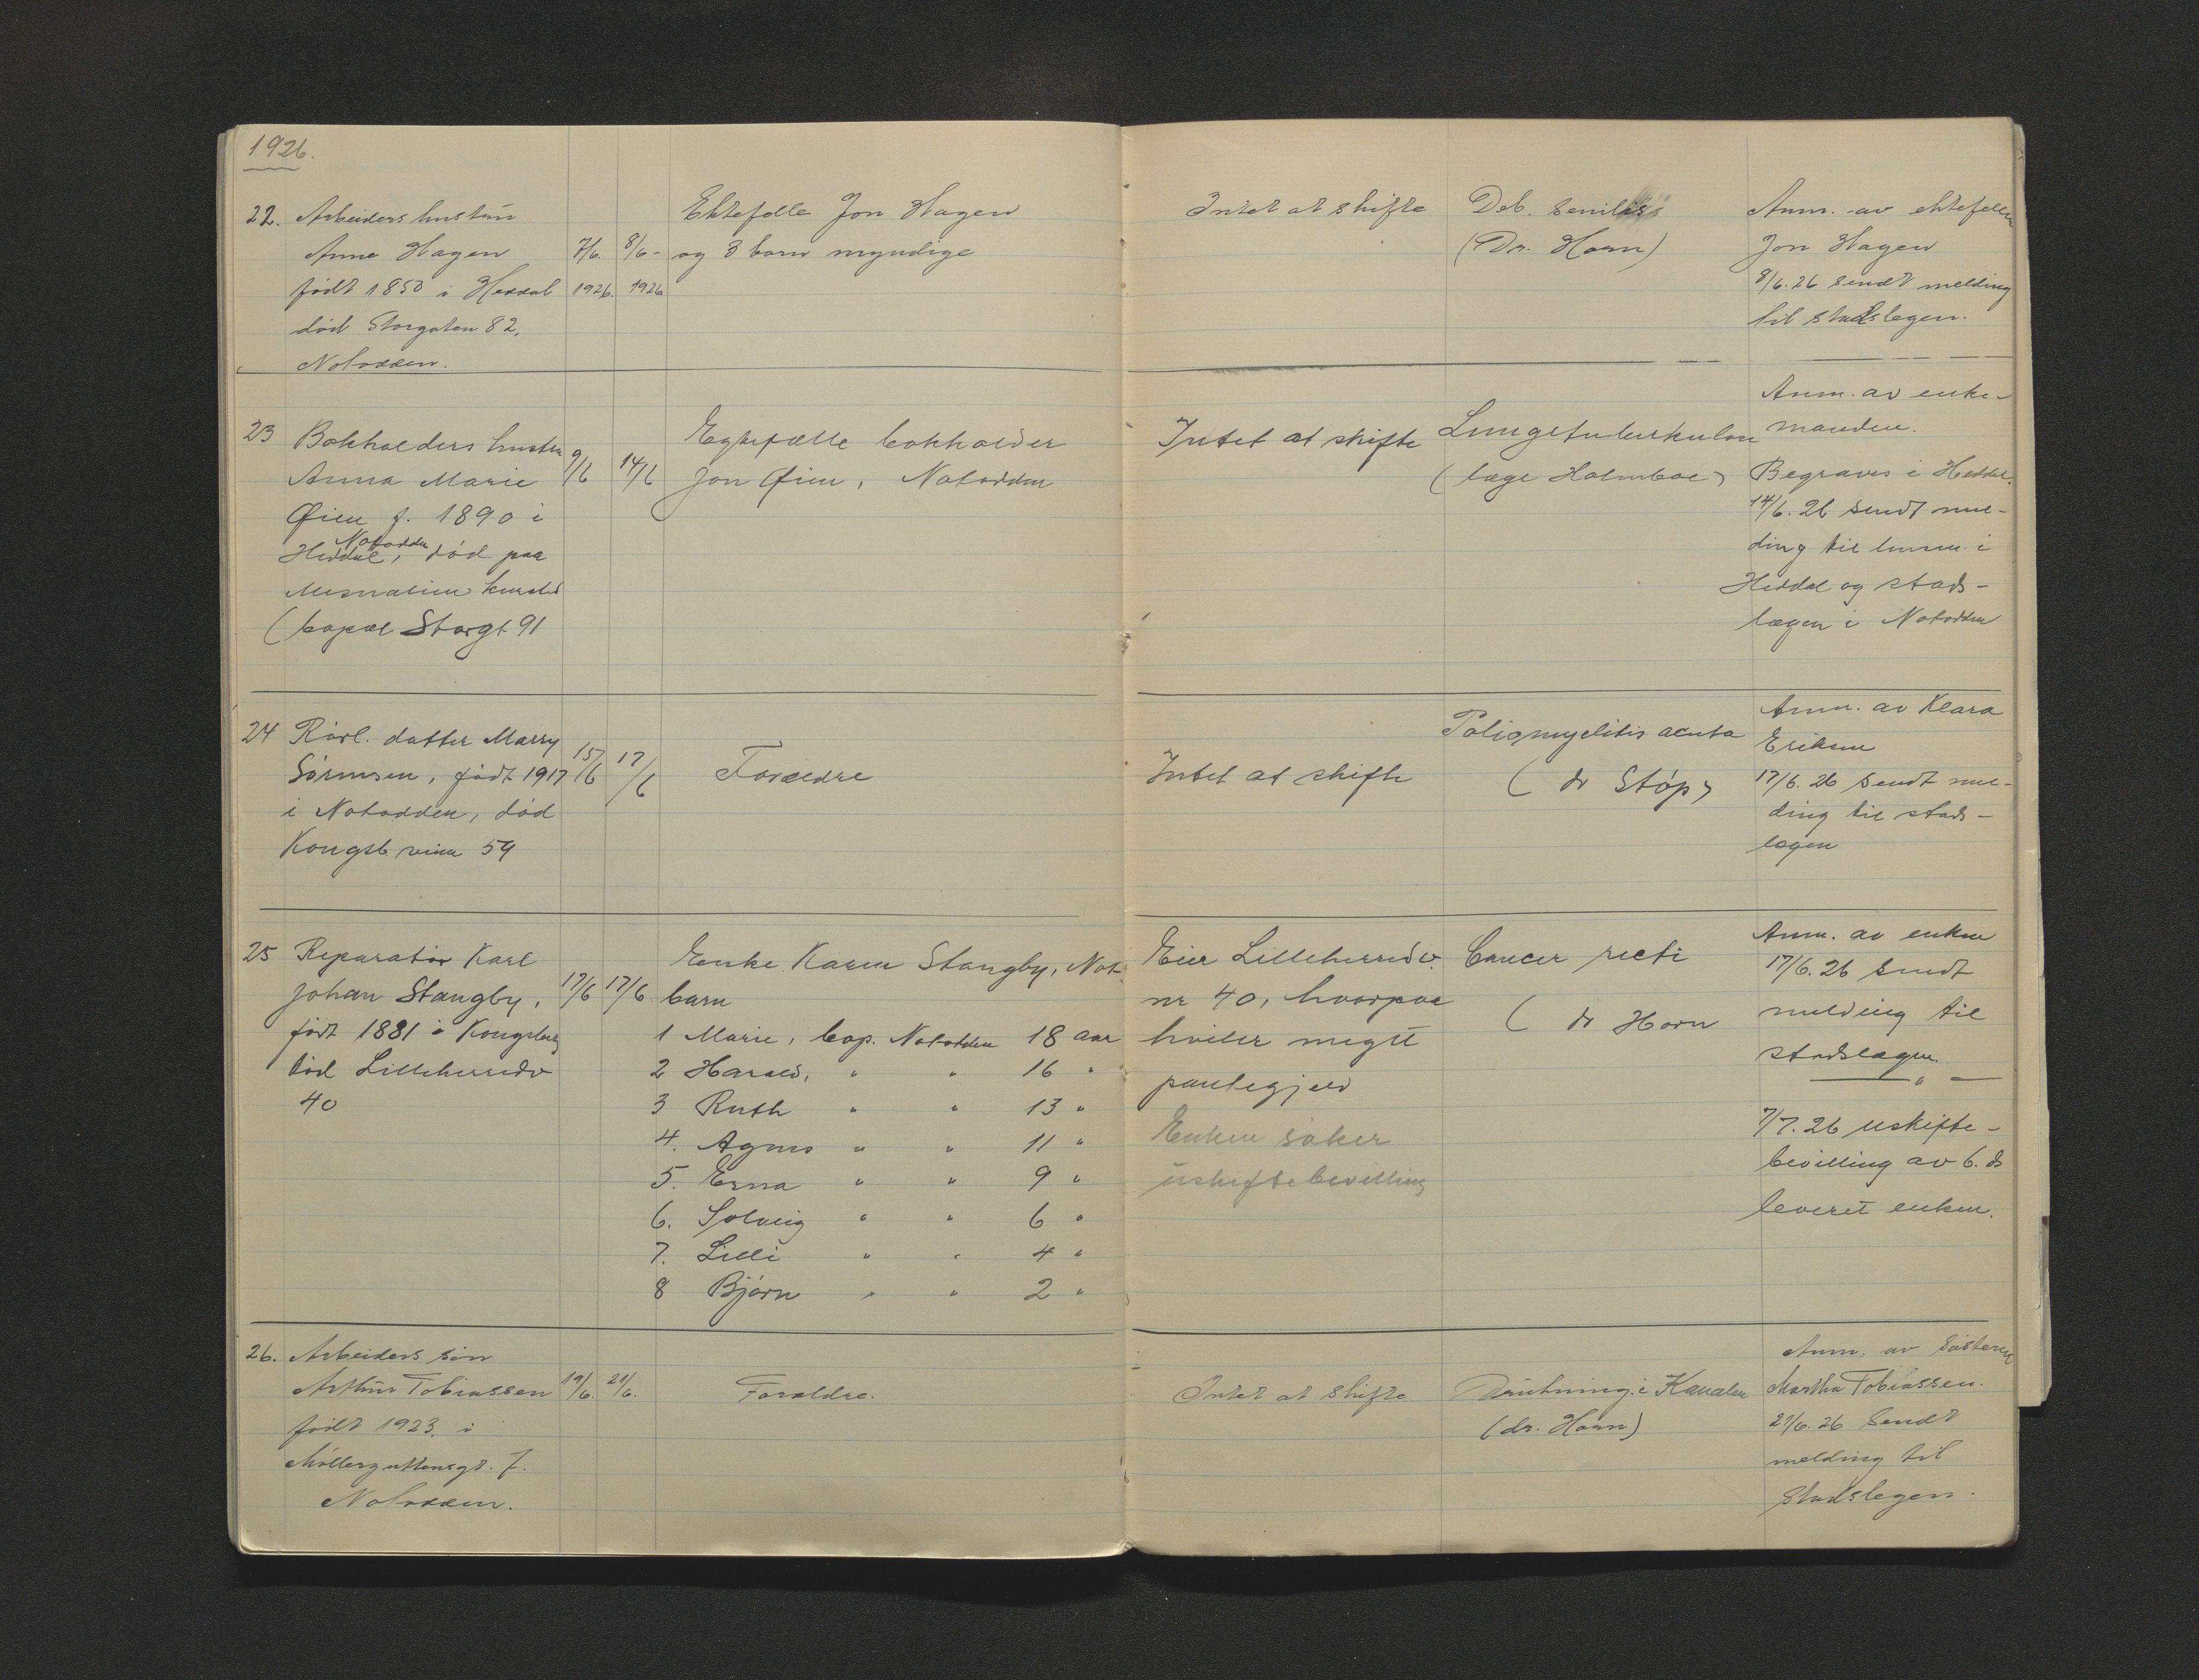 1926.
22. Arbeiders hustru
Anne Hagen
født 1850 i Heddal
død Storgaten 82,
Notodden.
7/6. 1926.
8/6- 1926
Ektefelle Jon Hagen
og 3 barn myndige
Intet at skifte
Deb. senilis
(Dr. Horn)
Anm. av ektefellen
Jon Hagen
8/6.26 sendt melding
til stadslegen.
23 Bokholders hustru
Anna Marie
Øien f. 1890 i
Notodden
Heddal, død paa
Mesnalien kursted
(bopæl Storgt 91
9/6
14/6
Egtefælle bokholder
Jon Øien, Notodden
Intet at skifte
Lungetuberkulose
(læge Holmboe)
Anm. av enke-
manden.
Begraves i Heddal.
14/6.26 sendt mel-
ding til lensm. i
Heddal og stads-
lægen i Notodden
24 Rørl. datter Marry
Sørensen, født 1917
i Notodden, død
Kongsb. veien 59
15/6
17/6
Forældre
Intet at skifte
Poliomyelitis acuta
(dr Støp)
Anm. av Klara
Eriksen
17/6.26 sendt mel-
ding til stads-
lægen
25 Reparatør Karl
Johan Stangby,
født 1881 i Kongsberg
død Lilleherredv
40
17/6
17/6
Enke Karen Stangby, Not.
barn
1 Marie, bop. Notodden 18 aar
2 Harald, " " 16 "
3 Ruth " " 13 "
4. Agnes " " 11 "
5. Erna " " 9 "
6. Solveig " " 6 "
7. Lilli " " 4 "
8 Bjørn " " 2 "
Eier Lilleherredv.
nr 40, hvorpaa
hviler meget
pantegjeld
Enken søker
uskiftebevilling
Cancer recti
(dr Horn
Anm. av enken
17/6.26 sendt
melding til
stadslægen
— " —
7/7.26 uskifte-
bevilling av 6. ds
leveret enken.
26. Arbeiders søn
Arthur Tobiassen
født 1923. i
Møllerguttensgt. 7.
Notodden.
19/6.
21/6.
Forældre.
Intet at skifte
Drukning i Kanalen
(dr. Horn)
Anm. av søsteren
Martha Tobiassen.
21/6.26 sendt
melding til
Stadslegen.